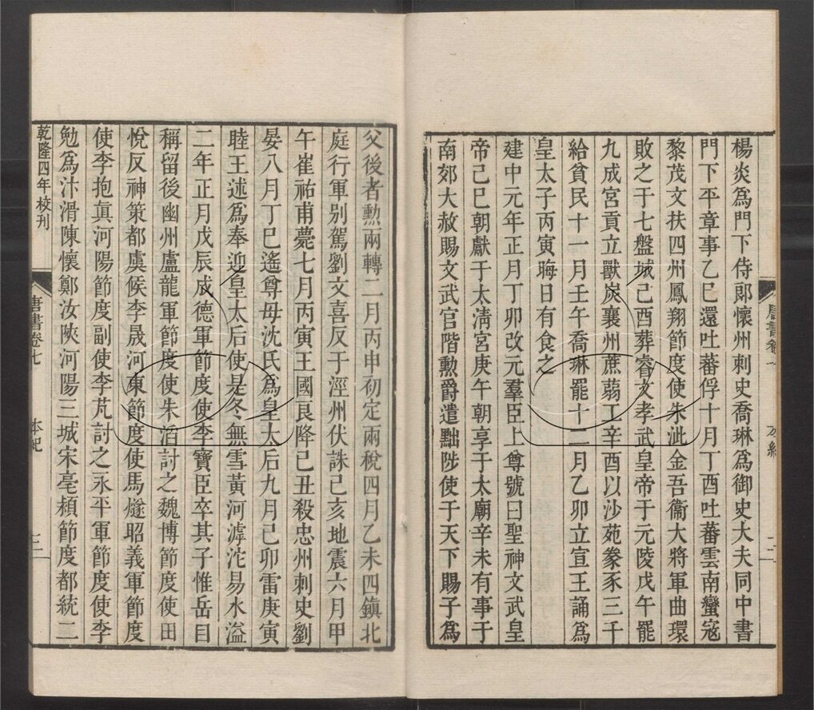 楊炎爲門下侍郞懷州刺史喬琳爲御史大夫同中書
門下平章事乙巳還吐蕃俘十月丁酉吐蕃雲南蠻寇
黎茂文扶四州鳳翔節度使朱泚金吾衞大將軍曲環
敗之于七盤城己酉葬睿文孝武皇帝于元陵戊午罷
九成宮貢立獸炭襄州蔗蒻工辛酉以沙苑豢豕三千
給貧民十一月壬午喬琳罷十二月乙卯立宣王誦爲
皇太子丙寅晦日有食之
建中元年正月丁卯改元羣臣上尊號曰聖神文武皇
帝己巳朝獻于太淸宮庚午朝享于太廟辛未有事于
南郊大赦賜文武官階勲爵遣黜陟使于天下賜子爲
父後者勲兩轉二月丙申初定兩稅四月乙未四鎮北
庭行軍別駕劉文喜反于涇州伏誅己亥地震六月甲
午崔祐甫薨七月丙寅王國良降己丑殺忠州刺史劉
晏八月丁巳遙尊母沈氏爲皇太后九月己卯雷庚寅
睦王述爲奉迎皇太后使是冬無雪黃河滹沱易水溢
二年正月戊辰成德軍節度使李寶臣卒其子惟岳自
稱留後幽州盧龍軍節度使朱滔討之魏博節度使田
悅反神策都虞候李晟河東節度使馬燧昭義軍節度
使李抱眞河陽節度副使李芃討之永平軍節度使李
勉爲汴滑陳懷鄭汝陝河陽三城宋亳潁節度都統二
乾隆四年校刊
唐書卷七
本紀